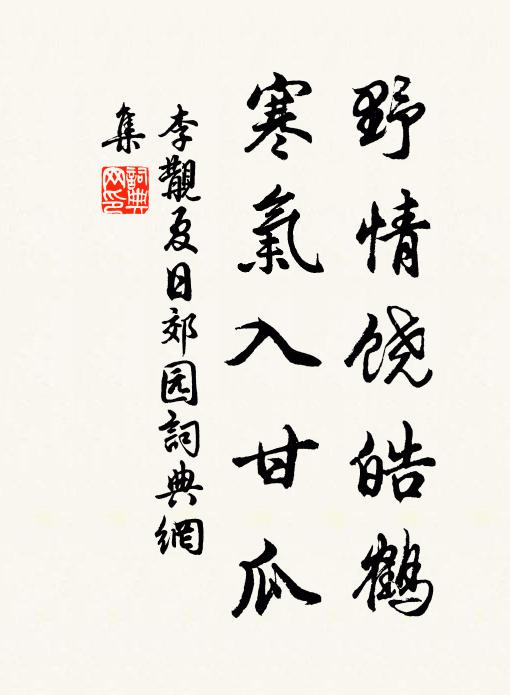 野情饶皓鹤
寒氣入甘瓜
李觀夏日郊园詞典網
集
詞典
网印